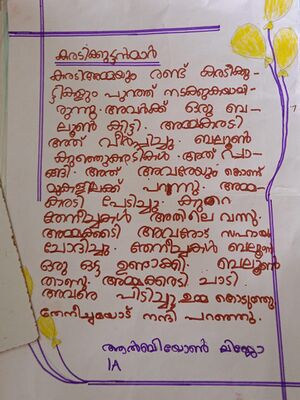 കരടിക്കുട്ടൻമാർ
കരടിഅമ്മയും രണ്ട് കരടിക്കു-
ട്ടികളും പുറത്ത് നടക്കുകയായി
രുന്നു. അവർക്ക് ഒരു ബ-
ലൂൺ കിട്ടി. അമ്മകരടി
അത് വീർപ്പിച്ചു. ബലൂൺ
കുഞ്ഞുകരടികൾ അത് പൊ-
ങ്ങി. അത് അവരേയും കൊണ്ട്
മുകളിലേക്ക് പറന്നു. അമ്മ-
കരടി പേടിച്ചു. കുറേ
തേനീച്ചകൾ അതിലെ വന്നു.
അമ്മക്കരടി അവരോട് സഹായം
ചോദിച്ചു. തേനീച്ചകൾ ബലൂൺ
ഒരു ഒട്ട ഉണ്ടാക്കി. ബലൂൺ
താണു. അമ്മക്കരടി ചാടി
അവരെ പിടിച്ചു ഉമ്മ കൊടുത്തു.
തേനീച്ചയോട് നന്ദി പറഞ്ഞു.
ആൽബിയോൺ ലിജോ
1A